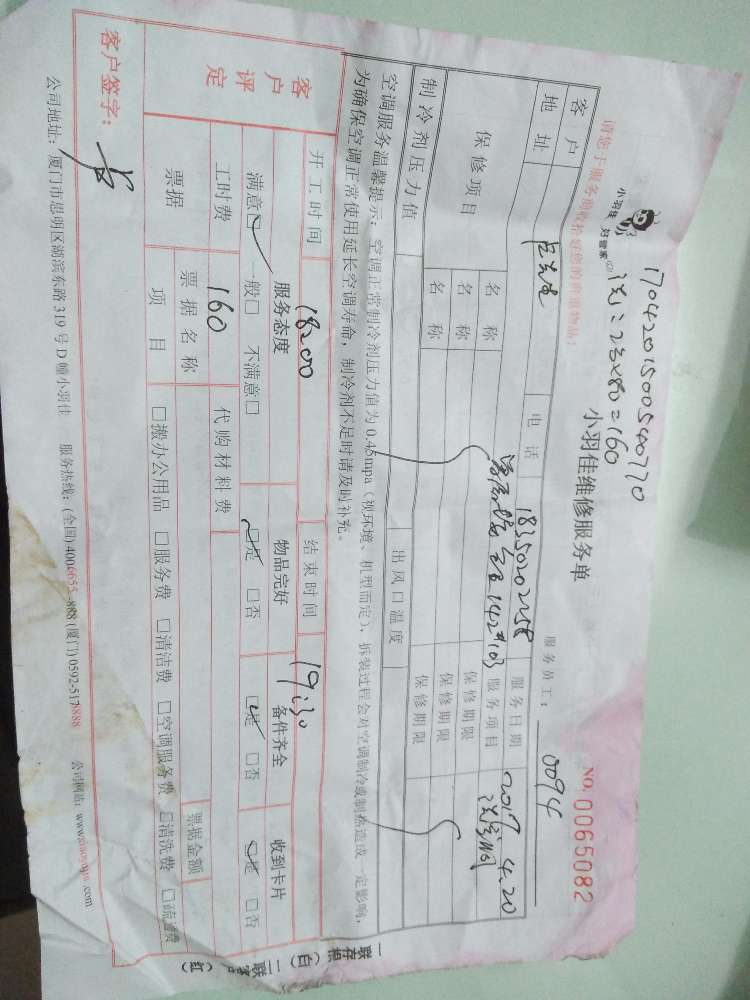 170420150054070
洗: 2台×80=160
小羽佳 好管家
小羽佳维修服务单
NO. 0065082
请您于服务前收拾好您的贵重物品!
服务员工: 0094
客户 电话 18350202258 服务日期 2017 4.20
地址 142#103 服务项目 洗空调
保修项目 名称 保修期限
名称 保修期限
名称 保修期限
制冷剂压力值 出风口温度
空调服务温馨提示: 空调正常制冷剂压力值为0.45mpa (视环境、机型而定), 拆装过程会对空调制冷或制热造成一定影响,
为确保空调正常使用延长空调寿命, 制冷剂不足时请及时补充。
开工时间 18:00 结束时间 19:30
客户评定 服务态度 物品完好 备件齐全 收到卡片
满意☑ 一般□ 不满意□ ☑是 □否 ☑是 □否 ☑是 □否
工时费 160 代购材料费
票据 票据名称 票据金额
项目 □搬办公用品 □服务费 □清洁费 □空调服务费 □清洗费 □疏通费
客户签字:
公司地址: 厦门市思明区湖滨东路319号D幢小羽佳 服务热线: (全国)4006655-888 (厦门) 0592-5178888 公司网站: www.xiaoyujia.com
一联存根 (白) 二联客户 (红)